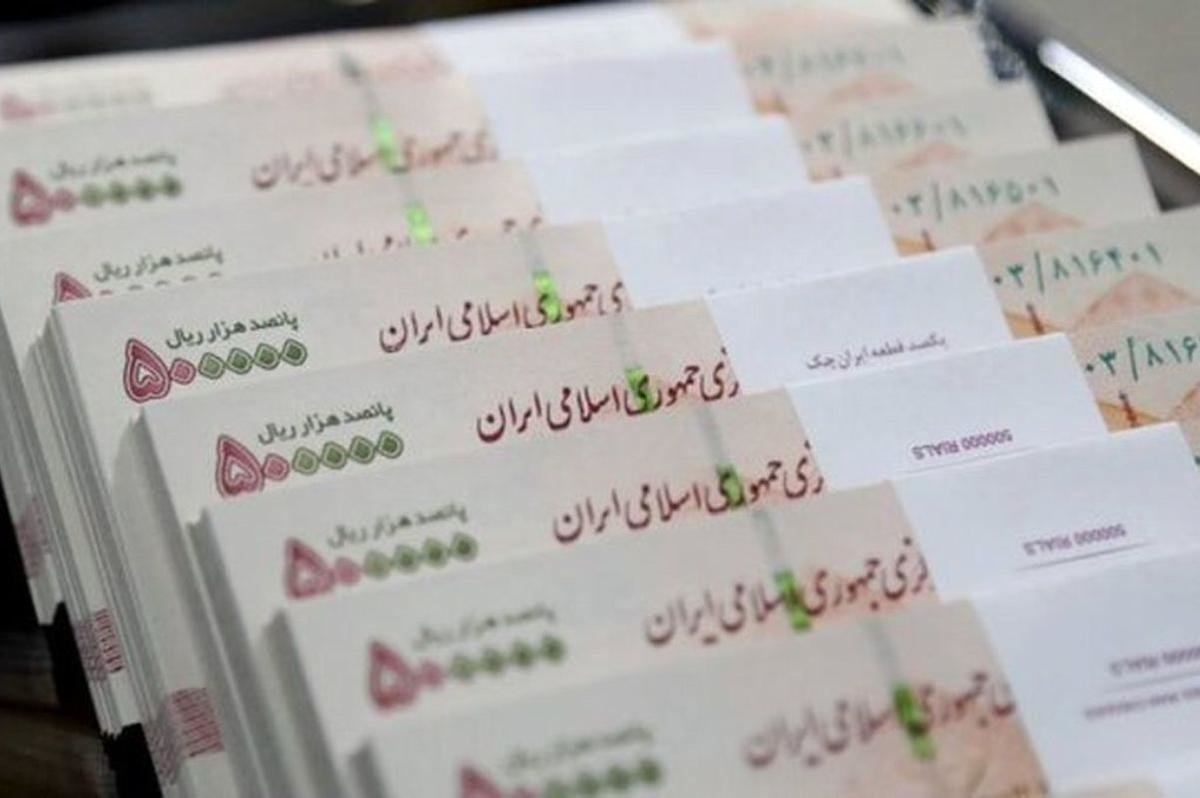 پانصد هزار ریال
۵۰۰۰۰۰
جمهوری اسلامی ایران
۰۳/۸۱۶۶۰۱
پانصد هزار ریال
۰۳/۸۱۶۵۰۱
پانصد هزار ریال
۵۰۰۰۰۰
ی جمهوری اسلامی ایران
۰۳/۸۱۶۴۰۱
پانصد هزار ریال
۵۰۰۰۰۰
زی جمهوری اسلامی ایران
یکصد قطعه ایران چک
۰۳/۸۱۶
پانصد هزار ریال
۵۰۰۰۰۰
زی جمهوری اسلامی ایران
500000 RIALS
پانصد هزار ریال
۵۰۰۰۰۰
زی جمهوری اسلامی ایران
500000 RIALS
پانصد هزار ریال
۵۰۰۰۰۰
ی جمهوری اسلامی ایران
500000 RIALS